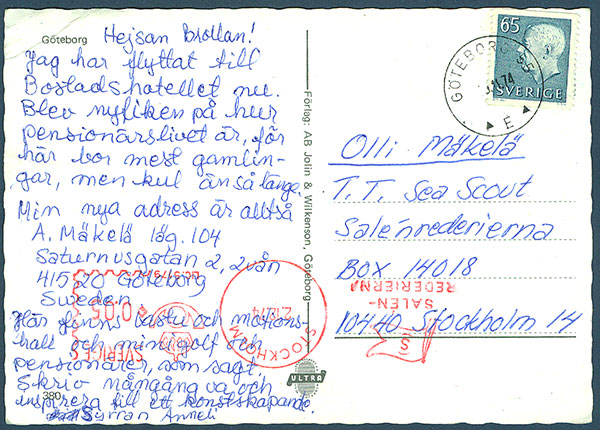 Göteborg
Hejsan Brollan!
Jag har flyttat till
Bostadshotellet nu.
Blev nyfiken på hur
pensionärslivet är, för
här bor mest gamlin-
gar, men kul än så länge.
Min nya adress är alltså
A. Mäkelä läg. 104
Saturnusgatan 2, 2vån
415 20 Göteborg
Sweden
Här finns bastu och motions
hall och minigolf och
pensionärer, som sagt.
Skriv nångång va och
inspirera till ett konstskapande.
Syrran Anneli
380
Förlag: AB Jolin & Wilkenson, Göteborg
ULTRA
65
SVERIGE
GÖTEBORG
74
E
Olli Mäkelä
T.T. Sea Scout
Salénrederierna
BOX 14018
10440 Stockholm 14
SALEN-
REDERIERNA
S
STOCKHOLM
SVERIGE